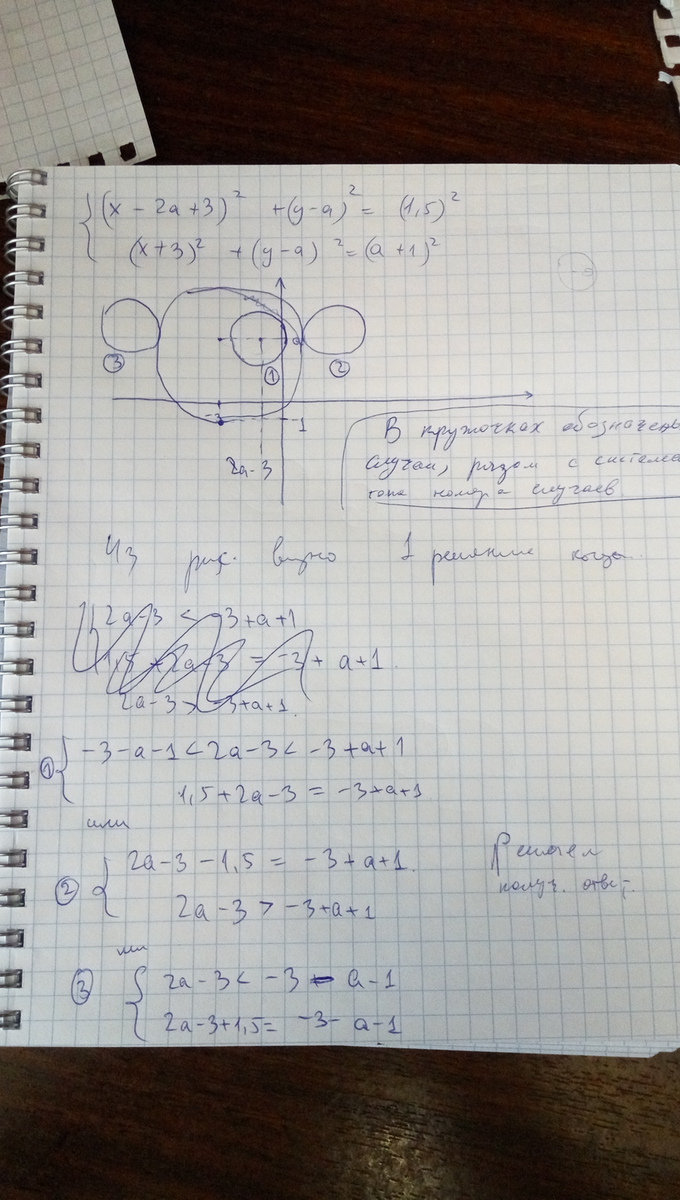 (x - 2a + 3)² + (y - a)² = (1,5)²
(x + 3)² + (y - a)² = (a + 1)²
a
③
①
②
-3
-1
2a-3
В кружочках обозначены
случаи,
номера случаев
Из рис. видно 1 решение когда
2a-3 < -3+a+1
1,5+2a-3 = -3+a+1.
2a-3 > -3+a+1.
① -3-a-1 < 2a-3 < -3+a+1
1,5+2a-3 = -3+a+1
или
② 2a-3-1,5 = -3+a+1.
2a-3 > -3+a+1
Решаем
получ. ответ.
или
③ 2a-3 < -3 - a-1
2a-3+1,5 = -3-a-1